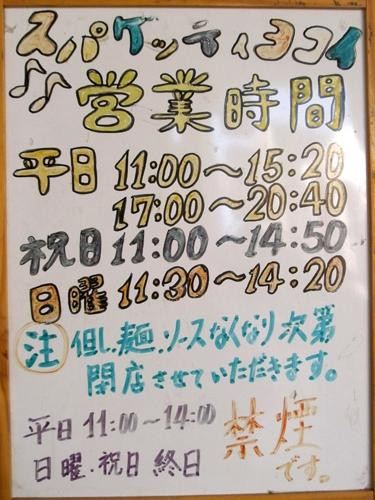 スパゲッティヨコイ
営業時間
平日 11:00〜15:20
17:00〜20:40
祝日 11:00〜14:50
日曜 11:30〜14:20
注 但し、麺、ソースなくなり次第
閉店させていただきます。
平日 11:00〜14:00
日曜・祝日 終日
禁煙
です。